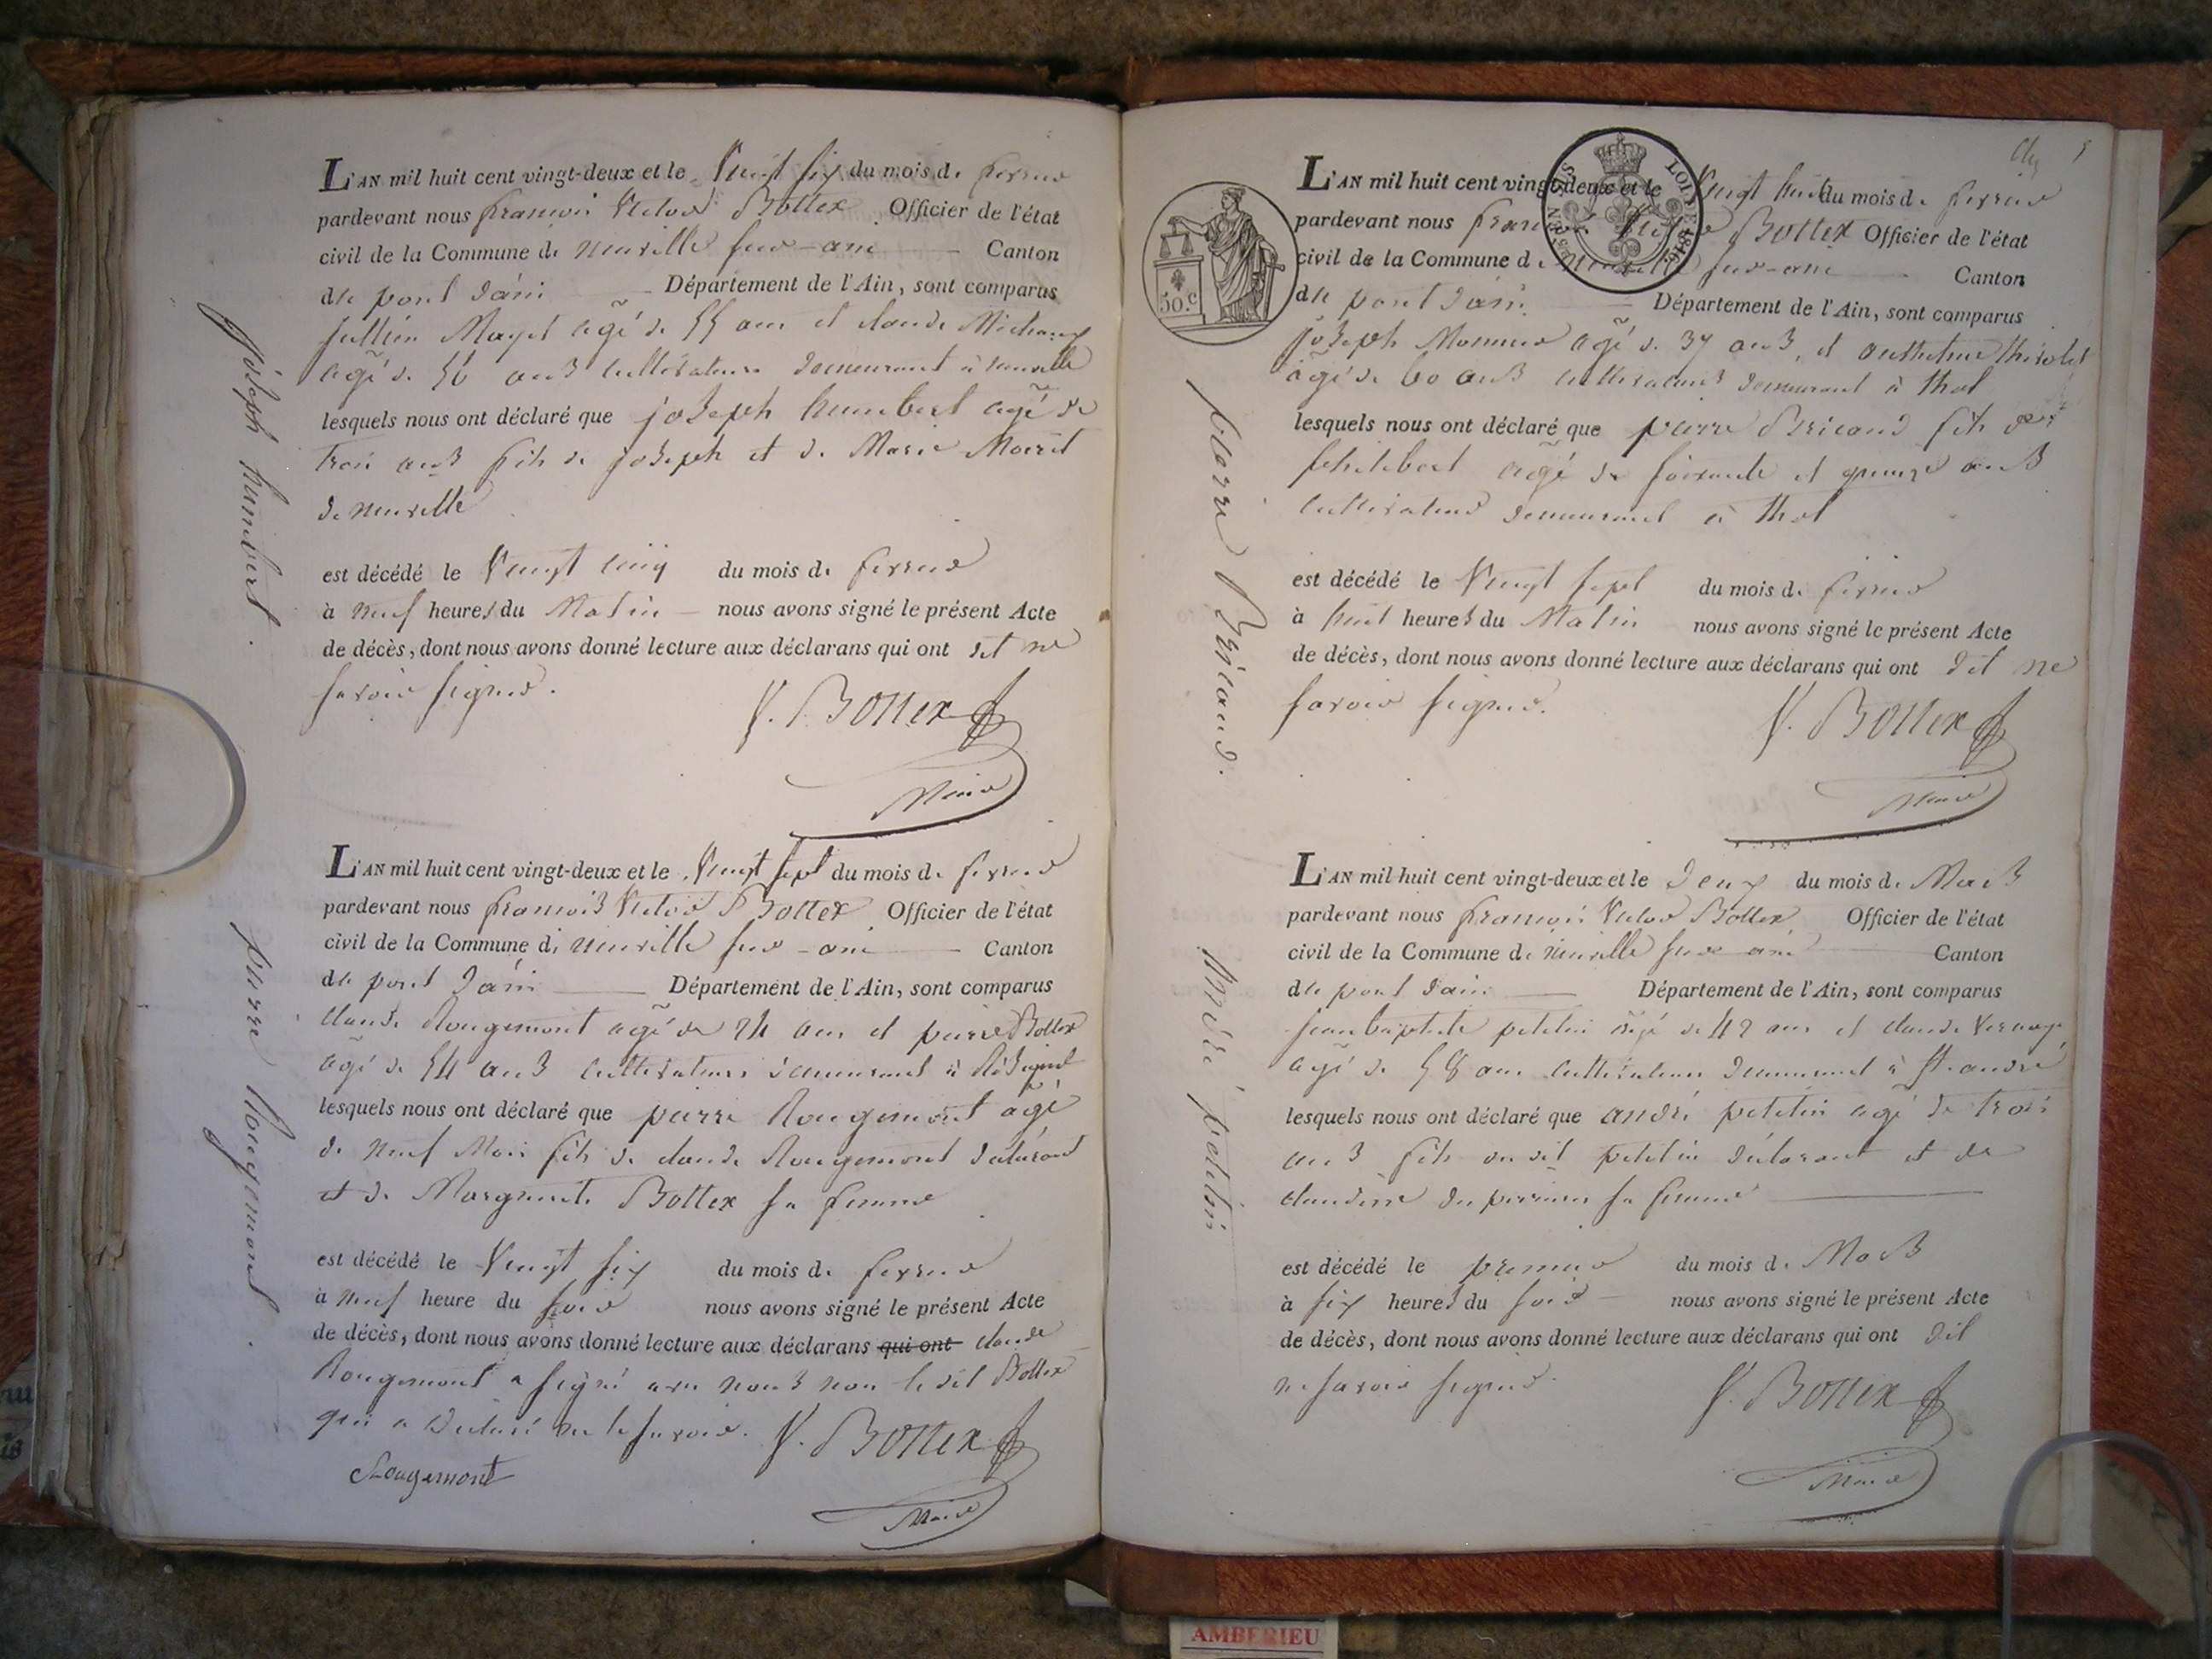 L'AN mil huit cent vingt-deux et le Vingt six du mois de fevrier
pardevant nous françois Victor Bottex Officier de l'état
civil de la Commune de neuville sur-ain Canton
de pont d'ain Département de l'Ain, sont comparus
jullien Mayet agé de 55 ans et claude
agé de 56 ans cultivateurs demeurant à neuville
lesquels nous ont déclaré que joseph humbert agé de
trois ans fils de joseph et de Marie
de neuville
est décédé le Vingt cinq du mois de fevrier
à neuf heures du Matin nous avons signé le présent Acte
de décès, dont nous avons donné lecture aux déclarans qui ont dit ne
savoir signer.
V. Bottex
Maire
joseph humbert.
L'AN mil huit cent vingt-deux et le Vingt sept du mois de fevrier
pardevant nous françois Victor Bottex Officier de l'état
civil de la Commune de neuville sur-ain Canton
de pont d'ain Département de l'Ain, sont comparus
claude Rougemont agé de ans et pierre Bottex
agé de 54 ans cultivateurs demeurant à
lesquels nous ont déclaré que pierre Rougemont agé
de neuf Mois fils de claude Rougemont déclarant
et de Marguerite Bottex sa femme
est décédé le Vingt six du mois de fevrier
à neuf heure du soir nous avons signé le présent Acte
de décès, dont nous avons donné lecture aux déclarans qui ont claude
Rougemont a signé avec nous non le dit Bottex
qui a déclaré ne le savoir. V. Bottex
Rougemont
Maire
pierre Rougemont.
L'AN mil huit cent vingt-deux et le Vingt huit du mois de fevrier
pardevant nous françois Victor Bottex Officier de l'état
civil de la Commune de neuville sur-ain Canton
de pont d'ain Département de l'Ain, sont comparus
50.c
LOI DE 1816
joseph Monnier agé de 37 ans, et
agé de 60 ans cultivateurs demeurant à thol
lesquels nous ont déclaré que pierre Bricand fils de
philibert agé de soixante et quinze ans
cultivateur demeurant à thol
est décédé le Vingt sept du mois de fevrier
à huit heures du Matin nous avons signé le présent Acte
de décès, dont nous avons donné lecture aux déclarans qui ont dit ne
savoir signer.
V. Bottex
Maire
pierre Bricand.
L'AN mil huit cent vingt-deux et le deux du mois de Mars
pardevant nous françois Victor Bottex Officier de l'état
civil de la Commune de neuville sur ain Canton
de pont d'ain Département de l'Ain, sont comparus
jean baptiste petetin agé de 42 ans et claude
agé de 58 ans cultivateurs demeurant à St. andré
lesquels nous ont déclaré que andré petetin agé de trois
ans fils du dit petetin déclarant et de
claudine sa femme
est décédé le premier du mois de Mars
à six heures du soir nous avons signé le présent Acte
de décès, dont nous avons donné lecture aux déclarans qui ont dit
ne savoir signer.
V. Bottex
Maire
André petetin
AMBERIEU